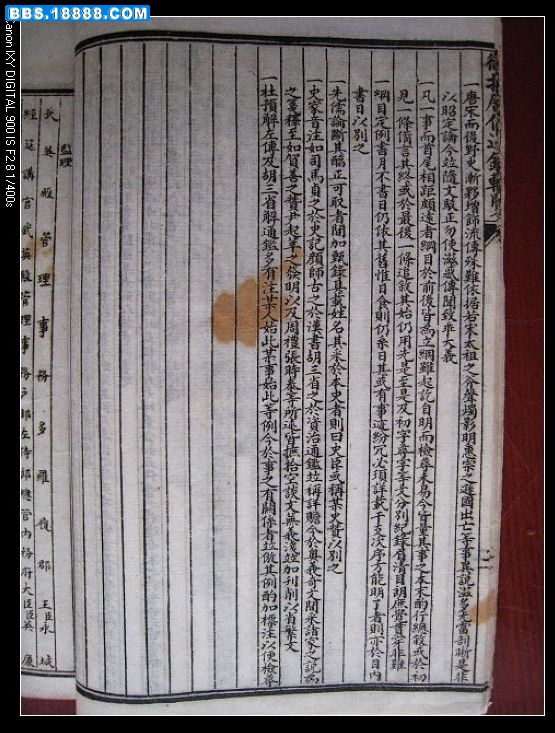 BBS.18888.COM
Canon IXY DIGITAL 900 IS F2.8 1/400s
一唐宋而後野史漸夥增飾流傳殊難依據若宋太祖之斧聲燭影明惠帝之遜國出亡等事異說滋多尤當剖晰是非
以昭定論今並隨文駁正勿使滋惑傳聞致乖大義
一凡一事而首尾相距頗遠者綱目於前後皆為立綱雖起訖自明而檢尋未易今皆量其事之本末酌行總敘或於初
見一條備言其終或於最後一條追敘其始仍用先是至是及初字尋字等文分別紀錄眉清目朗庶覽者非難
一綱目定例書月不書日仍依其舊惟日食則仍系日其或有事迹紛冗必須詳載干支次序方能明了者則亦於目內
書日以別之
一先儒論斷其醇正可取者間加甄錄具載姓名其采於本史者則曰史臣或稱某史贊以別之
一史家音注如司馬貞之於史記顏師古之於漢書胡三省之於資治通鑑並稱詳贍今於奧義奇文間采諸家之說為
之箋釋至如賀善之贊尹起莘之發明以及周禮張時泰等所述皆摭拾空談文無義淺並加刊削以省繁文
一杜預解左傳及胡三省解通鑑多有注某人始此某事始此等例今於事之有關係者並倣其例酌加標注以便檢尋
監理
武英殿管理事務多羅履郡王臣永珹
經筵講官武英殿管理事務戶部左侍郎總管內務府大臣臣英廉